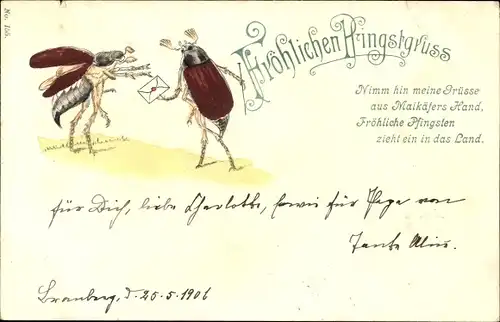 No. 155.
Fröhlichen Pfingstgruss
Nimm hin meine Grüsse
aus Maikäfers Hand,
Fröhliche Pfingsten
zieht ein in das Land.
für Dich, liebe Charlotte, sowie für von
Tante
d. 25.5.1906